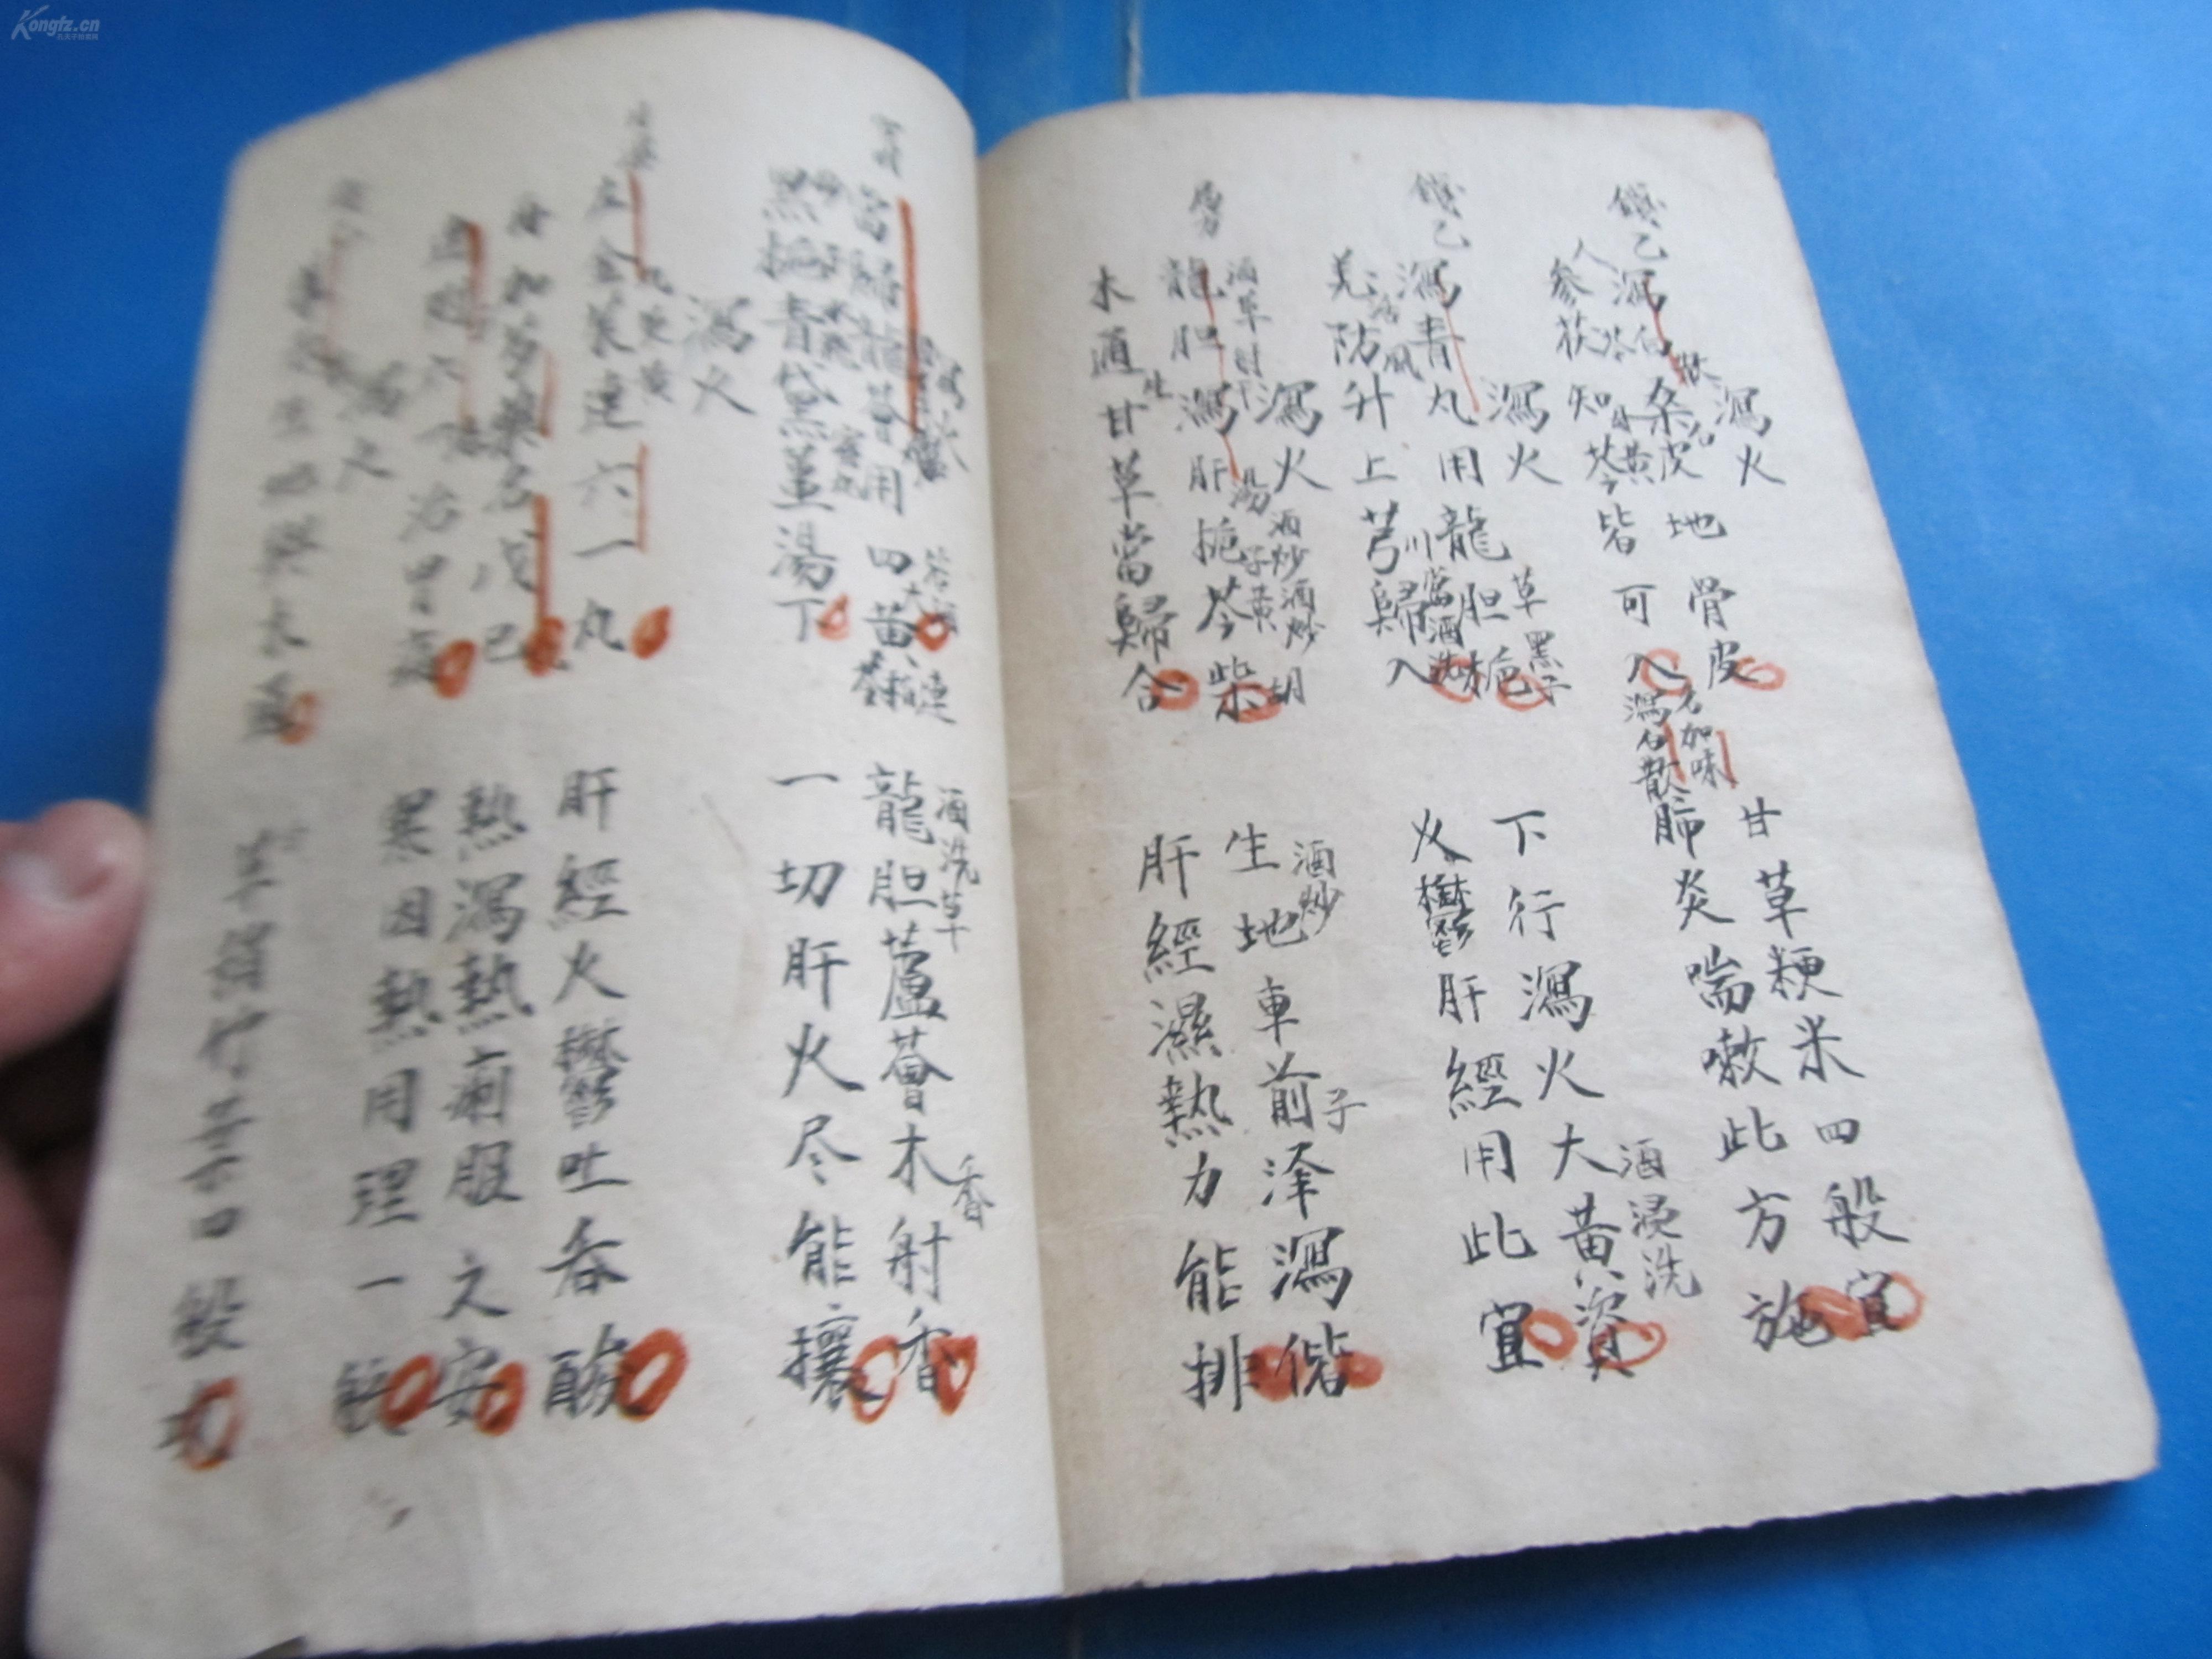 Kongfz.cn
錢乙
瀉火
瀉白散桑白皮地骨皮
甘草粳米四般宜
人參茯苓知母黃芩皆可入
名加味瀉白散
肺炎喘嗽此方施
錢乙
瀉火
瀉青丸用龍胆草梔子黑
下行瀉火大黃資
酒浸洗
羌活防風升上芎川歸當酒洗入
火鬱肝經用此宜
局方
瀉火
龍胆草瀉肝湯梔子芩黃柴胡
酒炒
酒炒
生地酒炒車前子澤瀉偕
木通生甘草當歸合
肝經濕熱力能排
當歸龍薈用四黃
龍胆草蘆薈木香射香
酒洗
黑梔青黛薑湯下
一切肝火尽能攘
瀉火
左金茱連六一丸
肝經火鬱吐吞酸
加芍藥名戊己
熱瀉熱痢服之安
治胃
寒因熱用理一般
瀉火
生地
草梢竹葉四般